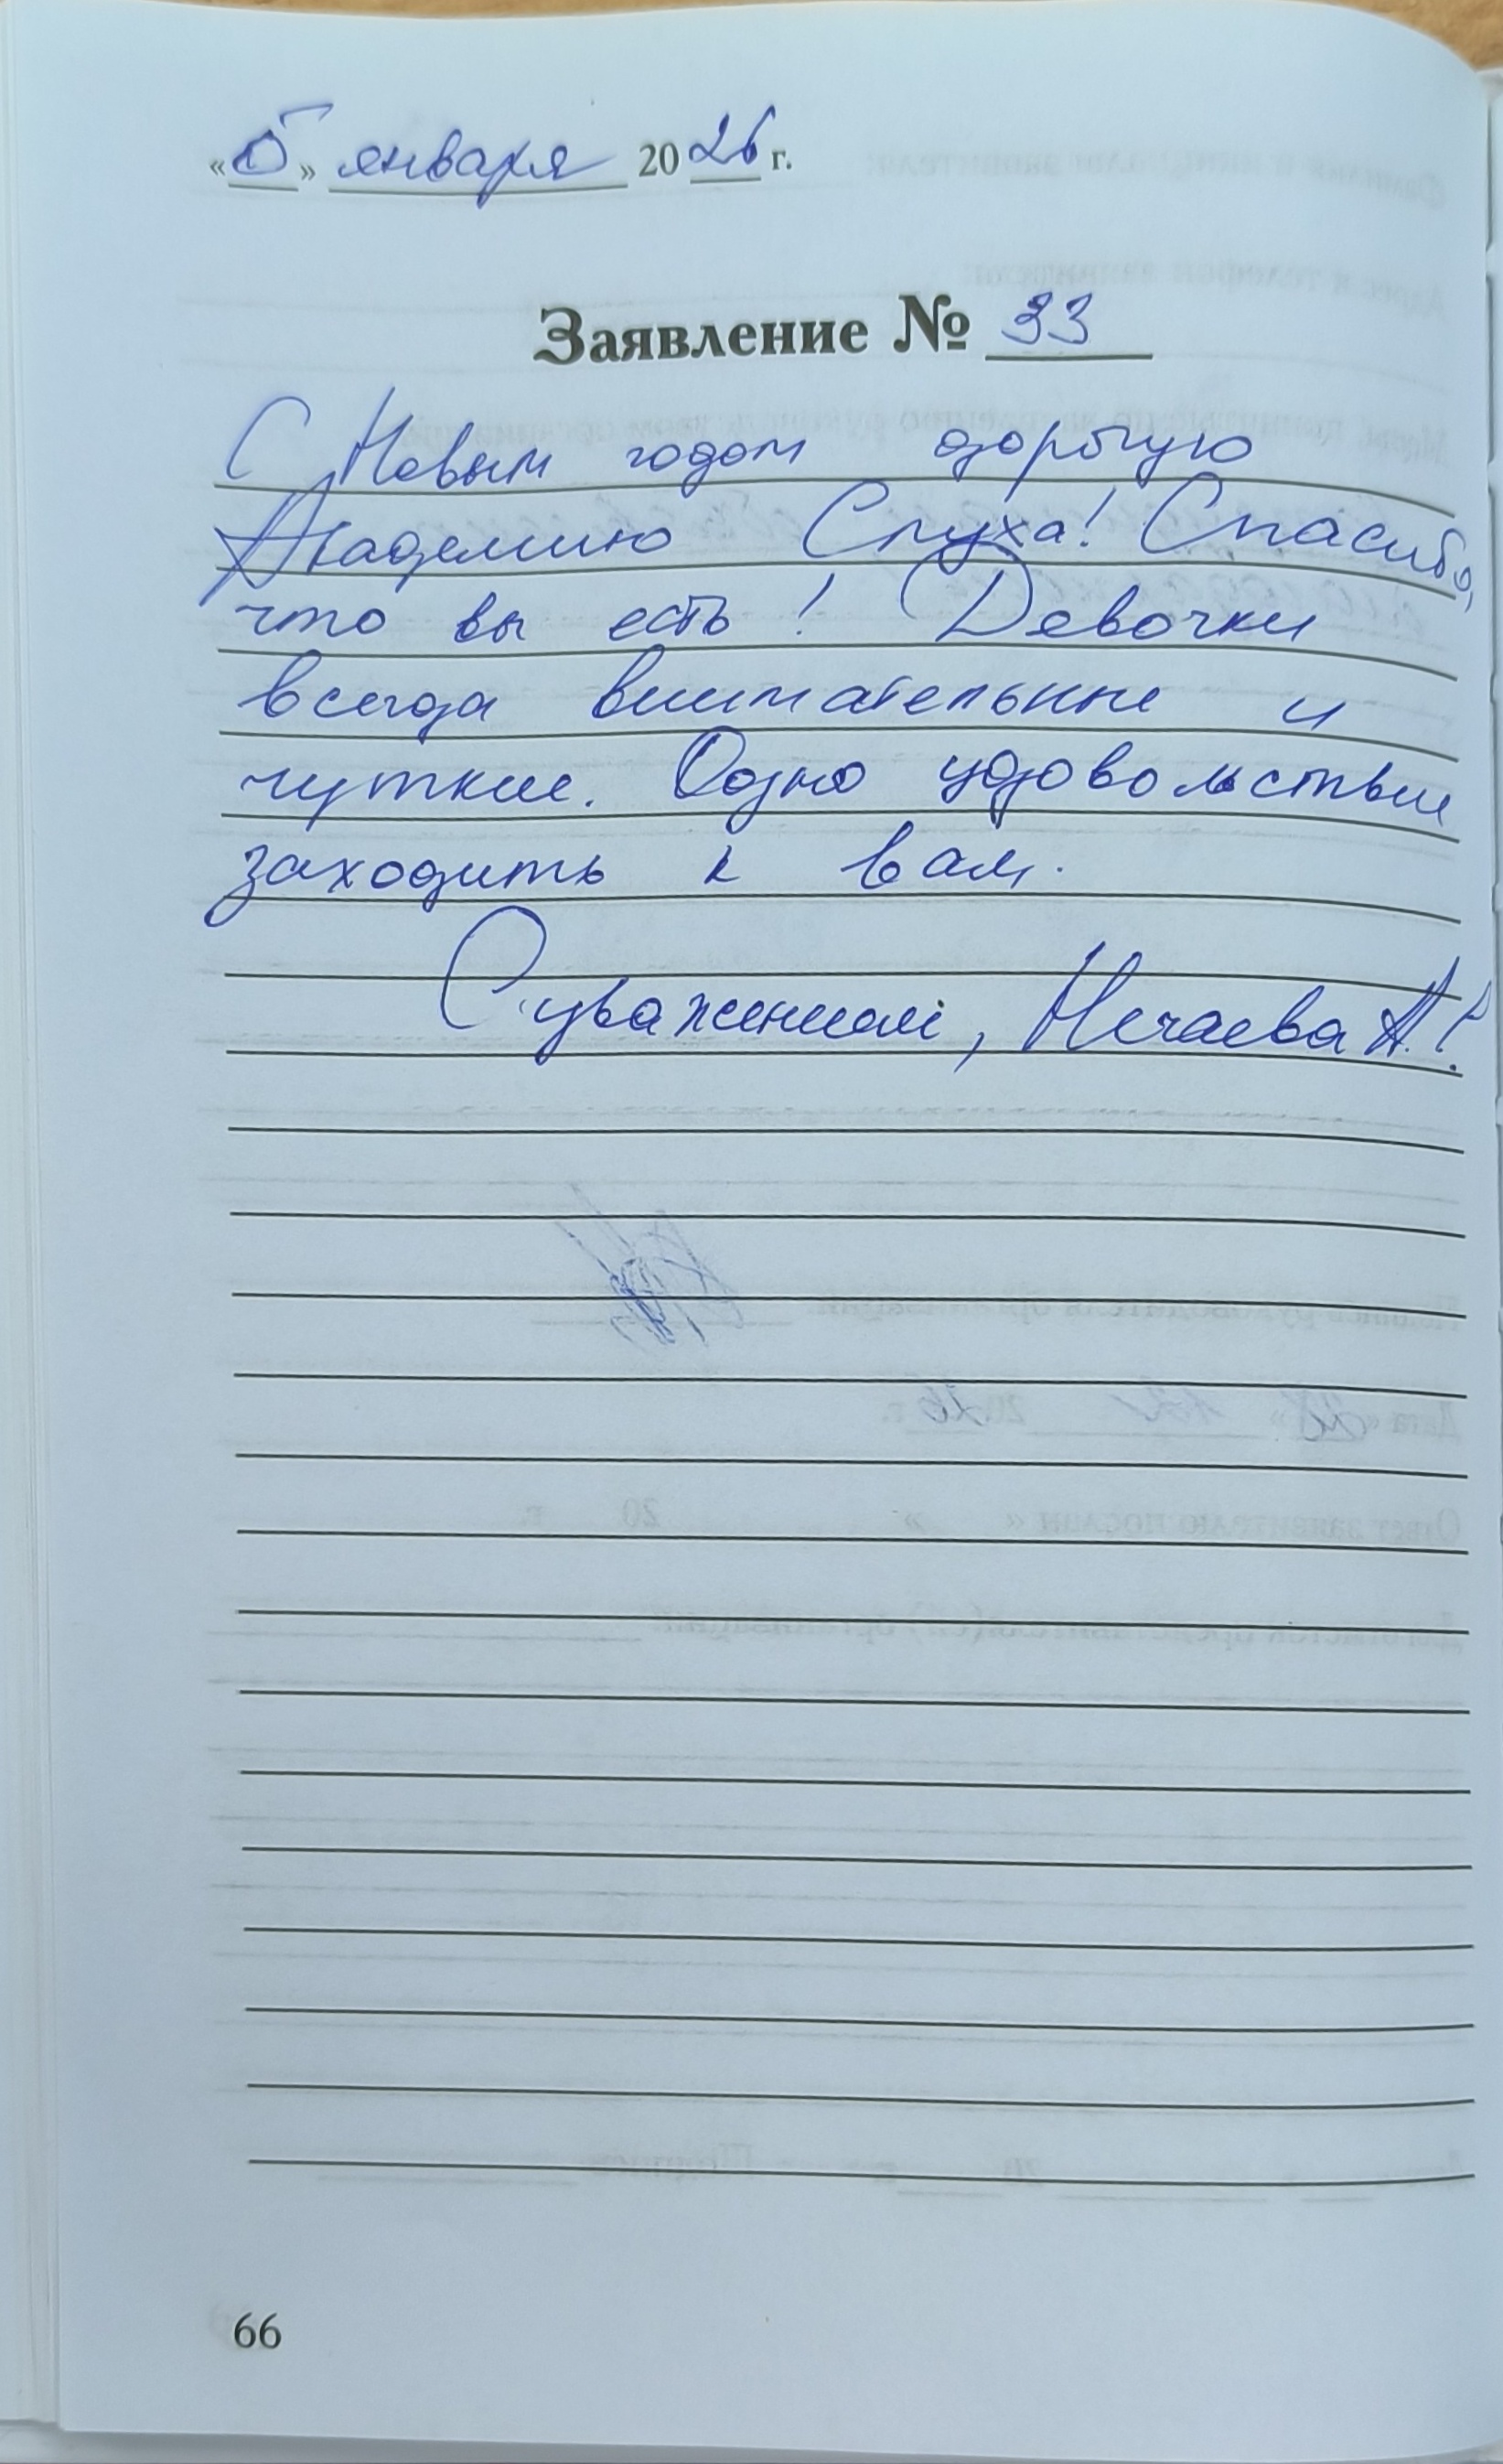 «5» января 2026 г.
Заявление № 33
С Новым годом дорогую
Академию Слуха! Спасибо,
что вы есть! Девочки
всегда внимательные и
чуткие. Одно удовольствие
заходить к вам.
С уважением, Нечаева А.!
66